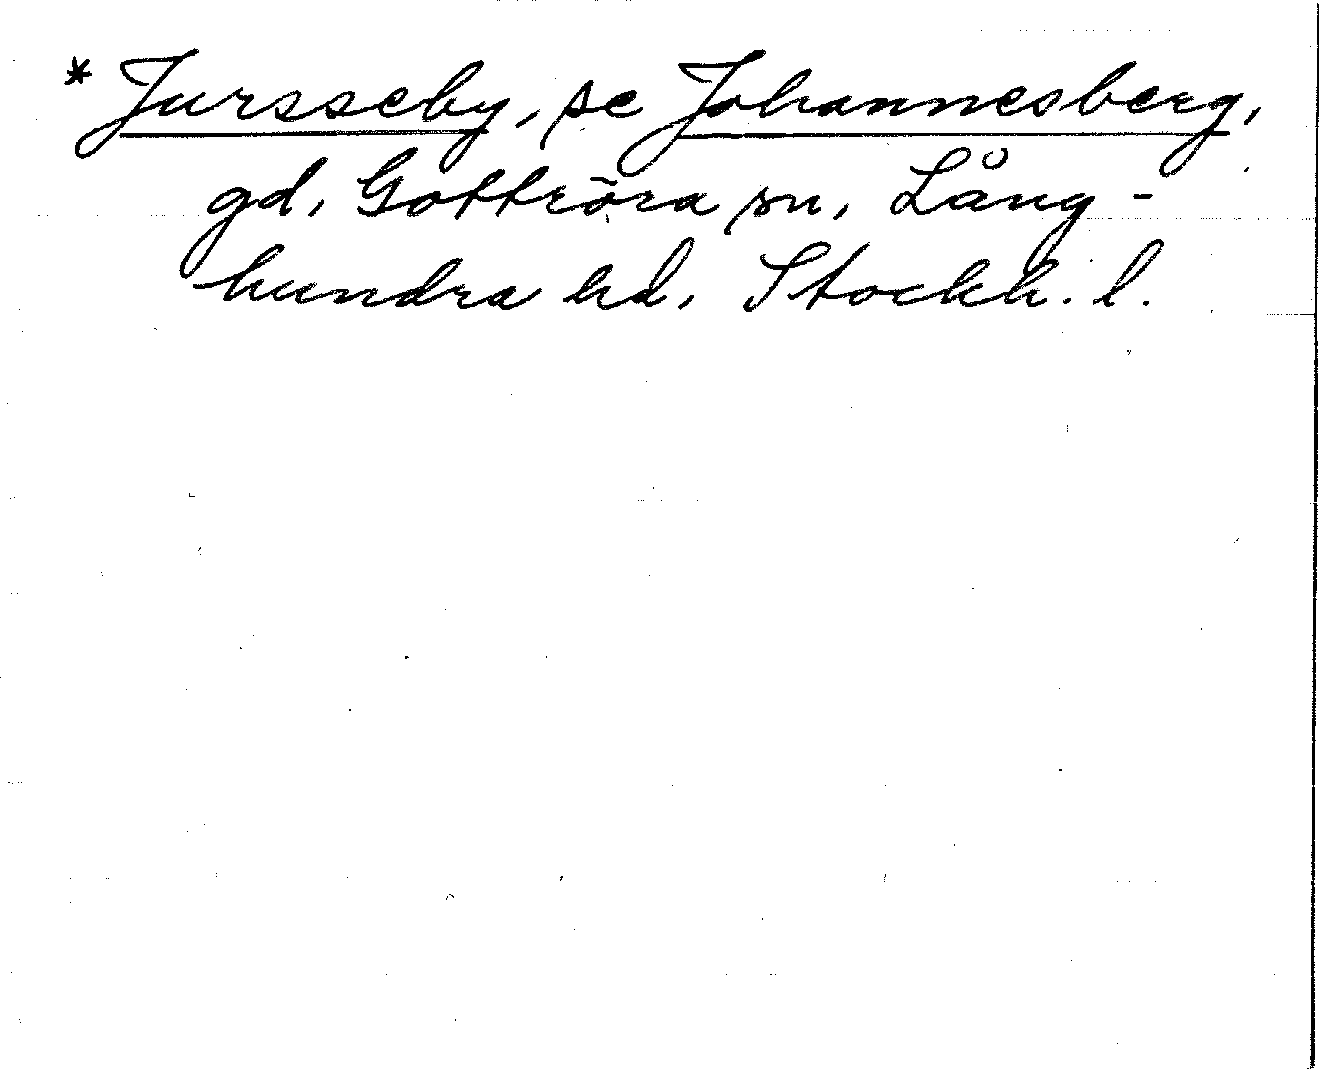 * Jursseby, se Johannesberg,
gd, Gottröra sn, Lång-
hundra hd, Stockh. l.